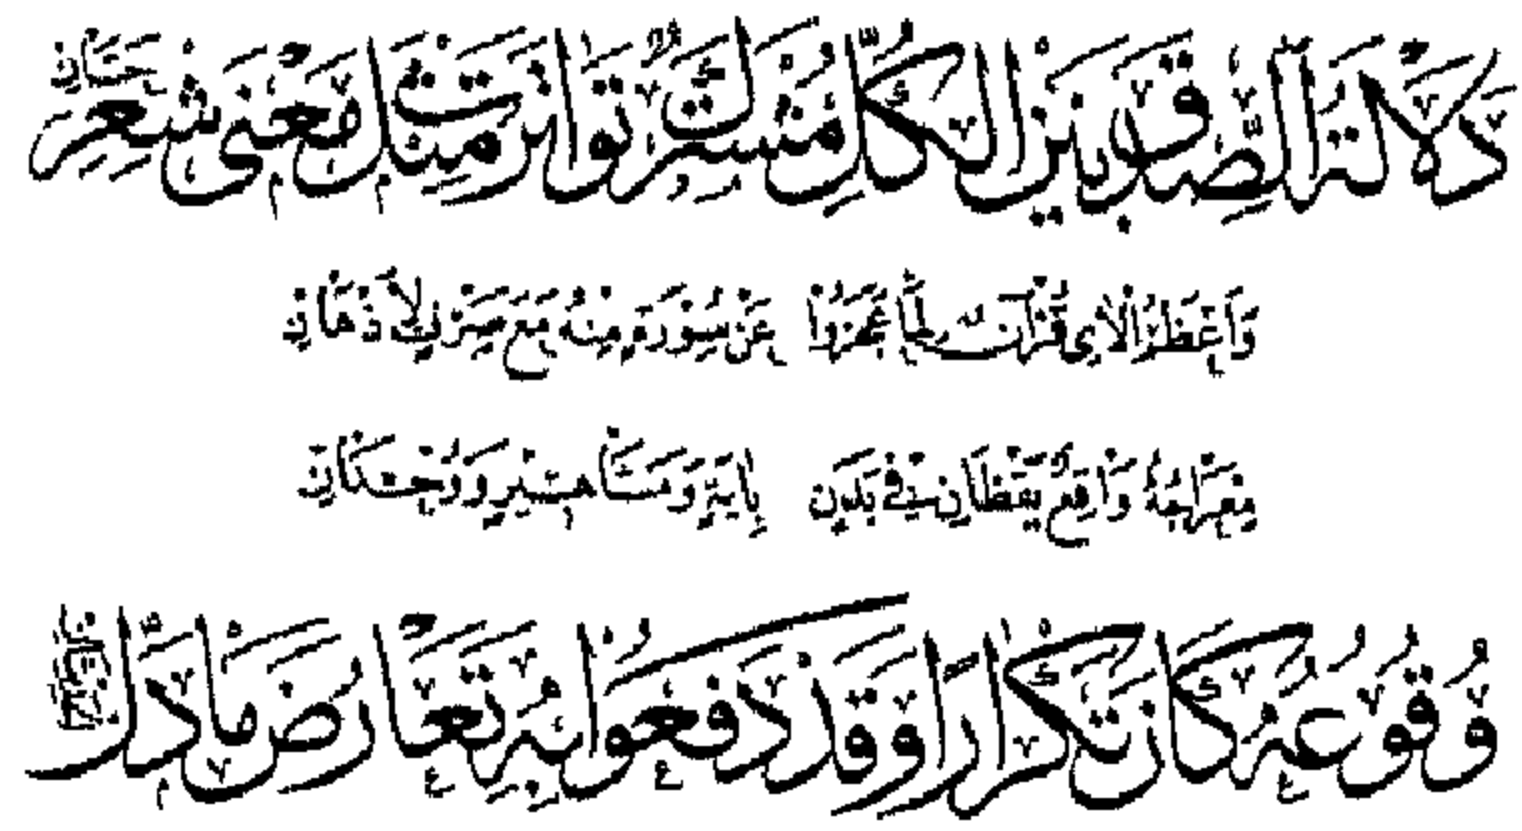 دَلَالَةُ الصِّدْقِ بَيْنَ الْكُلِّ مُشْتَرَكٌ تَوَاتَرَتْ مِثْلَ مَعْنَى شِعْرِ حَسَّانِ
وَأَعْظَمُ الْآيِ قُرْآنٌ لِمَا عَجَزُوا عَنْ سُورَةٍ مِنْهُ مَعَ لِأَذْهَانِ
مِعْرَاجُهُ وَاقِعٌ يَقْظَانَ فِي بَدَنٍ بِآيَةٍ وَمَشَاهِيرٍ وَوُحْدَانِ
وُقُوعُهُ كَانَ تَكْرَارًا وَقَدْ دَفَعُوا بِهِ تَعَارُضَ مَا دَلَّ الْحَدِيثَانِ